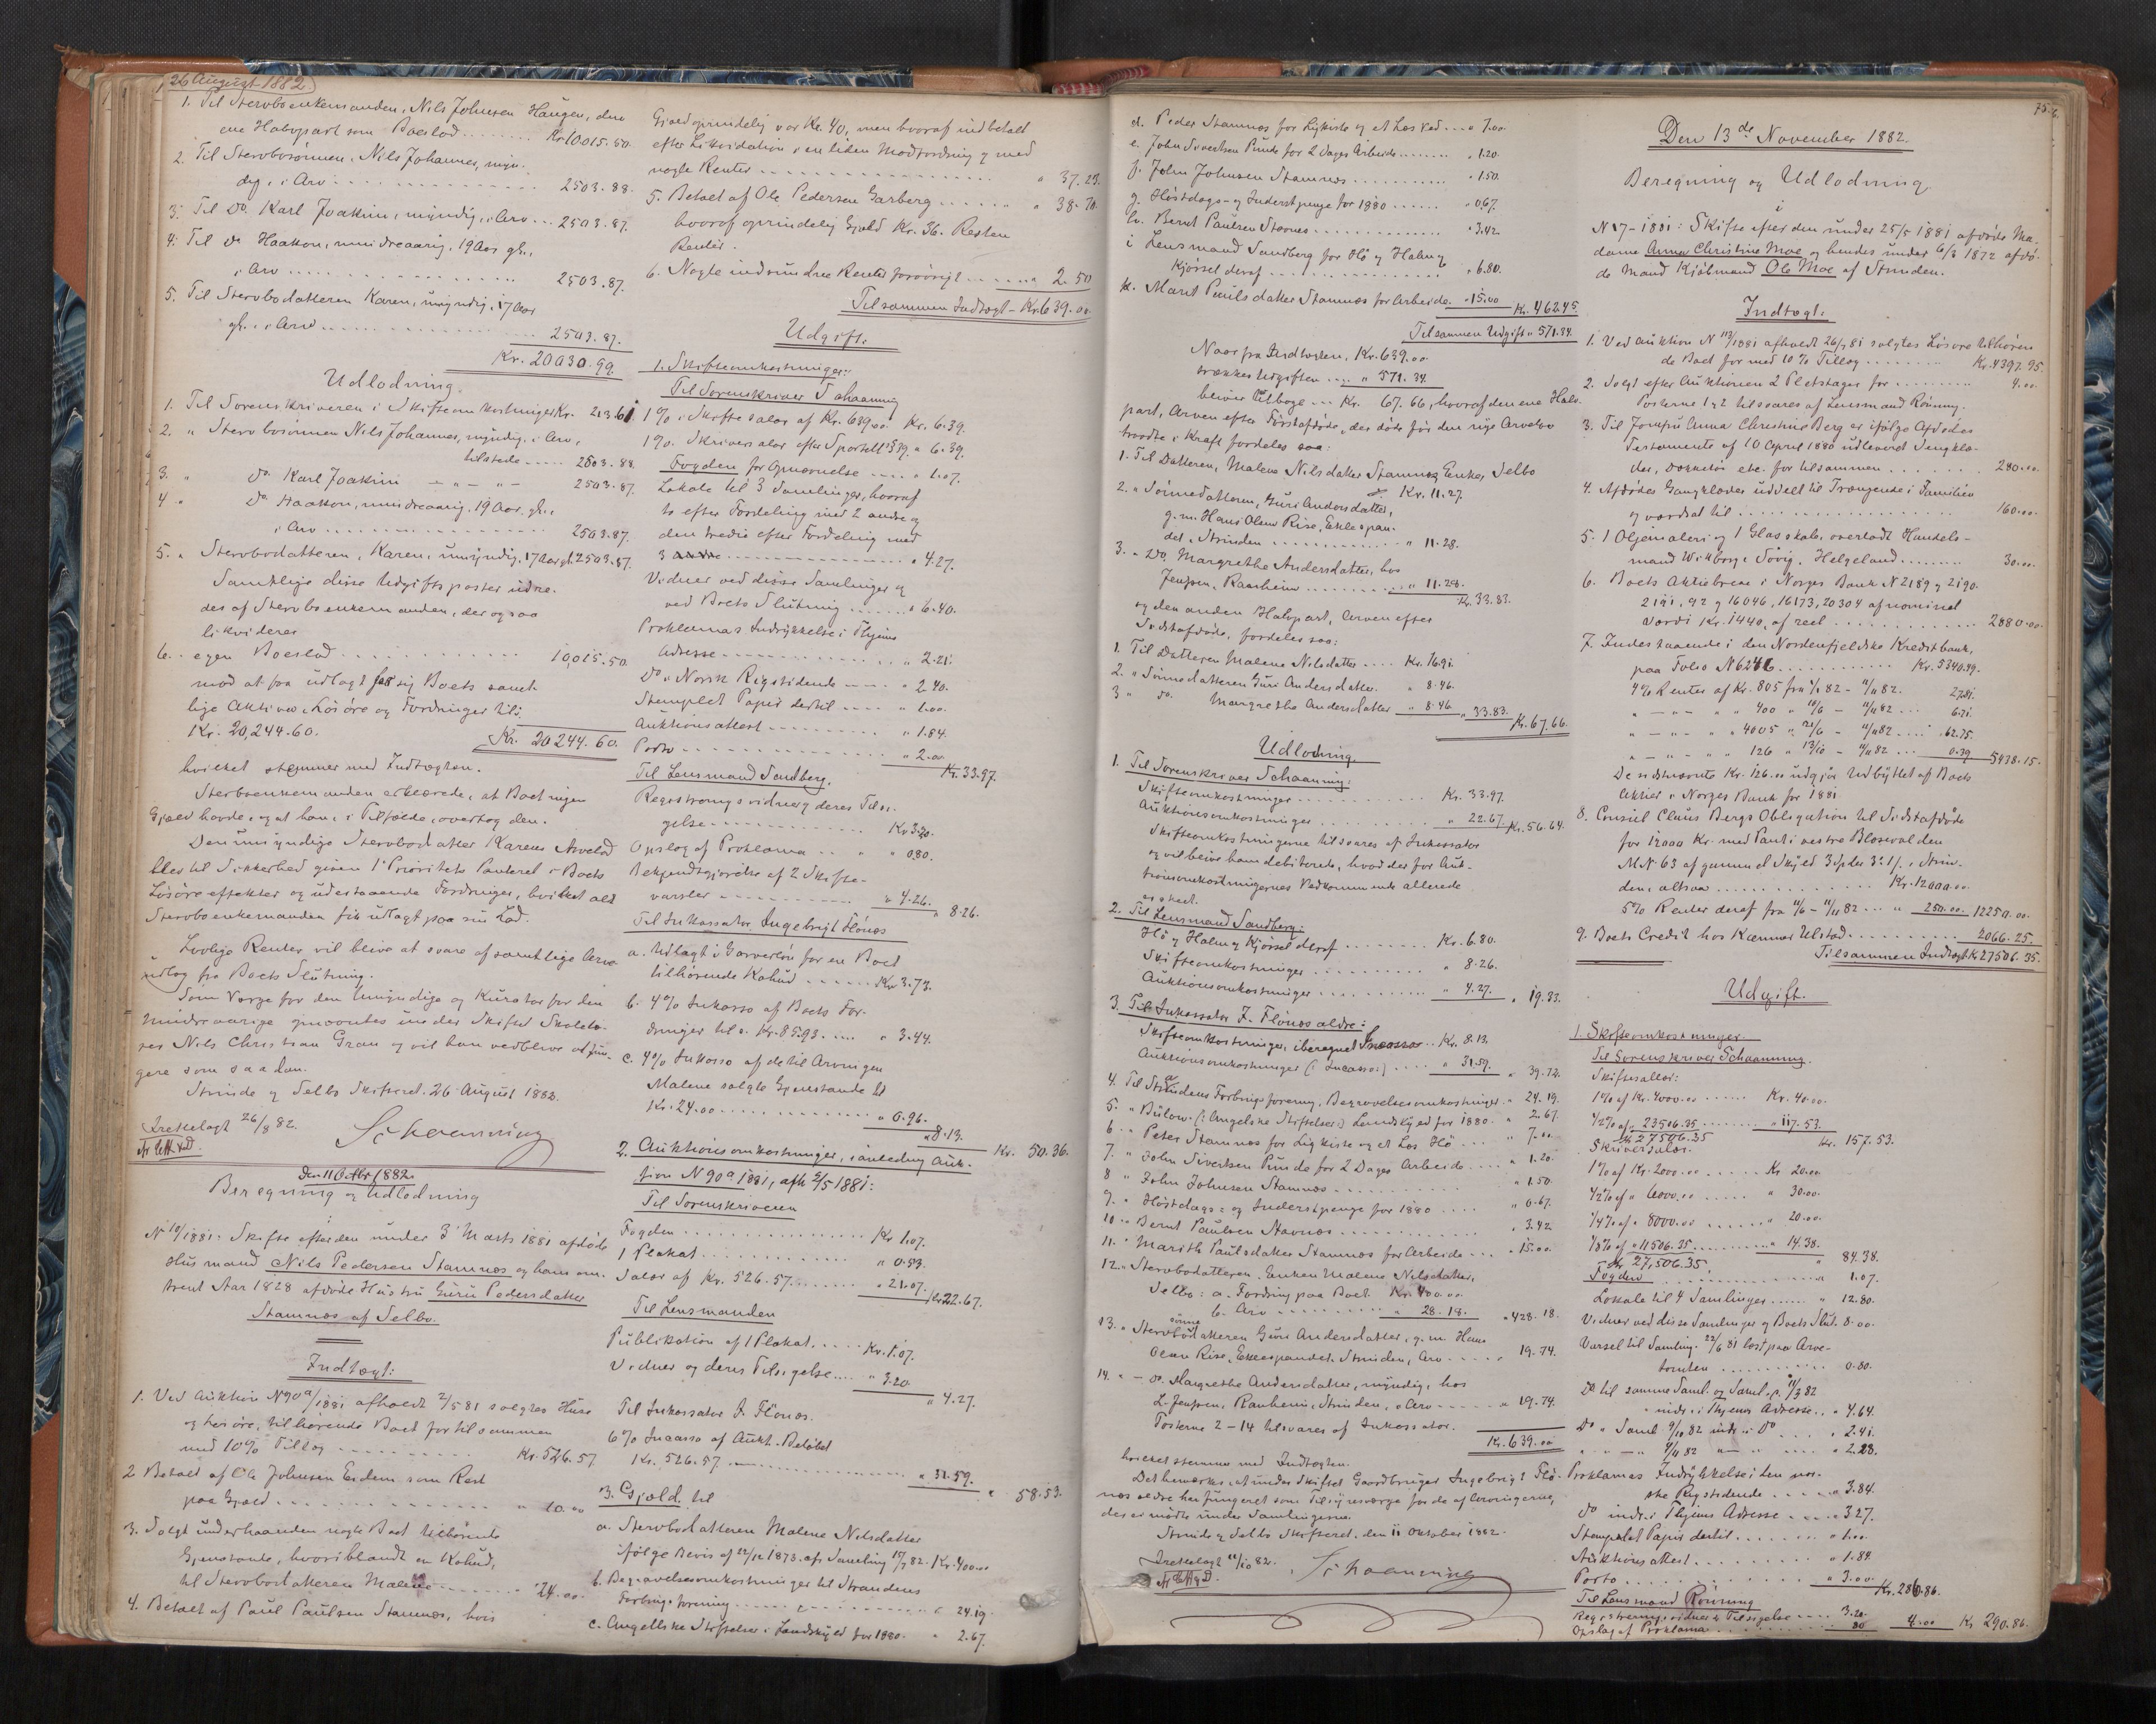 26 August 1882
1. Til Stervboenkemanden, Nils Johnsen Haugen, den
ene Halvpart som Boeslod ........ Kr. 10015.50.
2. Til Stervbosönnen, Nils Johannes, myn-
dig, i Arv ........ 2503.88.
3. Til Do. Karl Joakim, myndig, i Arv ... 2503.87.
4. Til do Haakon, mindreaarig, 19 Aar gl.,
i Arv ........ 2503.87.
5. Til Stervbodatteren Karen, umyndig, 17 Aar
gl., i Arv ........ 2503.87.
Kr. 20030.99.
Udlodning.
1. Til Sorenskriveren i Skifteomkostninger Kr. 213.61
2. " Stervbosönnen Nils Johannes, myndig, i Arv,
tilstede ..... 2503.88.
3. " do Karl Joakim — " — " — 2503.87.
4 " do Haakon, mindreaarig, 19 Aar gl.,
i Arv ........ 2503.87.
5. " Stervbodatteren, Karen, umyndig, 17 Aar gl. 2503.87.
Samtlige disse Udgiftsposter udre-
des af Stervboenkemanden, der ogsaa
likvideres
6. egen Boeslod ........ 10,015.50
mod at faa udlagt for sig Boets samt-
lige Aktiver i Lösöre og Fordringer til:
Kr. 20,244.60.
Kr. 20244.60.
hvilket stemmer med Indtægten.
Sterboenkemanden erklærede, at Boet ingen
Gjæld havde, og at han, i Tilfælde, overtog den.
Den umyndige Stervbodatter Karens Arvelod
blev til Sikkerhed given 1ste Prioritets Panteret i Boets
Lösöreeffekter og udestaaende Fordringer, hvilket alt
Stervboenkemanden fik udlagt paa sin Lod.
Lovlige Renter vil blive at svare af samtlige Arve
udlog fra Boets Slutning.
Som Værge for den Umyndige og Kurator for den
Mindreaarige opnævntes under Skiftet Skolelæ-
rer Nils Christian Gran og vil han vedblive at fun-
gere som saadan.
Strinde og Selbo Skifteret. 26 August 1882.
Fremlagt 26/8 82.
Schaanning
Den 11 Octbr 1882.
Beregning og Udlodning
i
No 10/1881: Skifte efter den under 3 Marts 1881 afdöde
Husmand Nils Pedersen Stamnæs og hans om-
trent Aar 1828 afdöde Hustru Guru Pedersdatter
Stamnæs af Selbo.
Indtægt:
1. Ved Auktion N 90a/1881 afholdt 2/5 81 solgtes Huse
og Lösöre, tilhörende Boet for tilsammen
med 10% Tillæg ........ Kr. 526.57
2 Betalt af Ole Johnsen Eidem som Rest
paa Gjæld ........ " 10.00
3. Solgt underhaanden nogle Boet tilhörende
Gjenstande, hvoriblandt en Kohud,
til Stervbodatteren Malene ........ " 24.00
4. Betalt af Paul Paulsen Stamnæs, hvis
Gjæld oprindelig var Kr. 40, men hvoraf indbetalt
efter Likvidation i en liden Modfordring og med
nogle Renter ........ " 37.23.
5. Betalt af Ole Pedersen Garberg ........ " 38.70.
hvoraf oprindelig Gjæld Kr. 36. Resten
Renter.
6. Nogle indvundne Renter forövrigt ........ " 2.50
Tilsammen Indtægt – Kr. 639.00.
Udgift:
1. Skifteomkostninger:
Til Sorenskriver Schaanning
1% i Skiftesalær af Kr. 639.00 Kr. 6.39.
1% Skriversalær efter Sportell § 39. " 6.39.
Fogden for Opnævnelse .... " 1.07.
Lokale til 3 Samlinger, hvoraf
to efter Fordeling med 2 andre og
den tredie efter Fordeling med
3 andre ........ " 4.27.
Vidner ved disse Samlinger og
ved Boets Slutning ....... " 6.40.
Proklamas Indrykkelse i Thjems
Adresse ........ " 2.21.
Do. i Norsk Rigstidende .... " 2.40.
Stemplet Papir dertil .... " 1.00.
Auktionsattest ........ " 1.84.
Porto ........ " 2.00.
Kr. 33.97.
Til Lensmand Sandberg.
Registreringsvidner og deres Tilsi-
gelse ........ Kr. 3.20.
Opslag af Proklama ... " 0.80.
Bekjendtgjörelse af 2 Skifte-
varsler ........ " 4.26.
" 8.26.
Til Inkassator Ingebrigt Flönæs
a. Udlagt i Garverlön for en Boet
tilhörende Kohud ...... Kr. 3.73.
b. 4% Inkasso af Boets For-
dringer til s. Kr. 85.93 .... " 3.44.
c. 4% Inkasso af de til Arvingen
Malene solgte Gjenstande til
Kr. 24.00 ........ " 0.96.
" 8.13.
Kr. 50.36.
2. Auktionsomkostninger, i anledning Auk-
tion N 90a 1881, afh. 2/5 1881:
Til Sorenskriveren
Fogden ........ Kr. 1.07.
1 Plakat ........ " 0.53.
Salær af Kr. 526.57 ........ " 21.07.
Kr. 22.67.
Til Lensmanden
Publikation af 1 Plakat ..... Kr. 1.07.
Vidner og deres Tilsigelse .... " 3.20
" 4.27.
Til Inkassator I. Flönæs.
6% Incasso af Aukt.-Belöbet
Kr. 526.57 ........ " 31.59.
" 58.53.
3. Gjæld, til
a. Stervbodatteren Malene Nilsdatter
ifölge Bevis af 22/12 1873, afs. Samling 19/7 82. Kr. 400.00
b. Begravelsesomkostninger til Strandens
Forbrugsforening ........ " 24.19.
c. Angellske Stiftelser i Landskyld for 1880. " 2.67.
75.
d. Peder Stamnæs for Ligkiste og et Læs Ved .... " 7.00.
e. John Sivertsen Punde for 2 Dages Arbeide ........ " 1.20.
f. John Johnsen Stamnæs ........ " 1.50.
g. Höstdags- og Inderstpenge for 1880 ...... " 0.67.
h. Bernt Paulsen Stavnes ........ " 3.42.
i Lensmand Sandberg for Hö og Halm og
Kjörsel deraf ........ " 6.80.
k. Marit Paulsdatter Stamnæs for Arbeide. " 15.00
Kr. 462.45
Tilsammen Udgift " 571.34.
Naar fra Indtægten, Kr. 639.00
trækkes Udgiften .... " 571.34.
bliver tilbage ... Kr. 67.66, hvoraf den ene Halv-
part, Arven efter Förstafdöde, der döde för den nye Arvelov
traadte i Kraft fordeles saa:
1. Til Datteren, Malene Nilsdatter Stamnæs, Enke, Selbo
Kr. 11.27.
2. " Sönnedatteren, Guri Andersdatter,
g. m. Hans Olsen Rise, Eklespan-
det, Strinden ........ " 11.28.
3. " Do. Margrethe Andersdatter, hos
Jenssen, Ranheim ........ " 11.28.
Kr. 33.83.
og den anden Halvpart, Arven efter
Sidstafdöde, fordeles saa:
1. Til Datteren Malene Nilsdatter .... Kr. 16.91.
2. " Sönnedatteren Guri Andersdatter. " 8.46.
3 " do. Margrethe Andersdatter " 8.46
" 33.83.
Kr. 67.66.
Udlodning.
1. Til Sorenskriver Schaanning:
Skifteomkostninger ........ Kr. 33.97.
Auktionsomkostninger ........ " 22.67.
Kr. 56.64.
Skifteomkostningerne tilsvares af Inkassator
og vil blive ham debiterede, hvad der for Auk-
tionsomkostningernes Vedkommende allerede
er skeet.
2. Til Lensmand Sandberg:
Hö og Halm og Kjörsel deraf ........ Kr. 6.80.
Skifteomkostninger ........ " 8.26.
Auktionsomkostninger ........ " 4.27.
" 19.33.
3. Til Inkassator I. Flönæs ældre:
Skifteomkostninger, iberegnet Incasso .. Kr. 8.13.
Auktionsomkostninger (: Incasso:) .... " 31.59.
" 39.72.
4. Til Strandens Forbrugsforening, Begravelsesomkostninger. " 24.19.
5. " Bülow (: Angelske Stiftelser:) Landskyld for 1880. " 2.67.
6 " Peter Stamnæs for Ligkiste og et Læs Hö .. " 7.00.
7. " John Sivertsen Punde for 2 Dages Arbeide .... " 1.20.
8 " John Johnsen Stamnæs ........ " 1.50.
9. " Höstdags- og Inderstpenge for 1880 .... " 0.67.
10 " Bernt Paulsen Stavnæs ........ " 3.42.
11. " Marith Paulsdatter Stamnæs for Arbeide ... " 15.00.
12. " Stervbodatteren, Enken Malene Nilsdatter,
Selbo: a. Fordring paa Boet. Kr. 400.00.
b. Arv ........ " 28.18.
" 428.18.
13. " Stervbosönnedatteren Guri Andersdatter, g. m. Hans
Olsen Rise, Eklespandet, Strinden, Arv ..... " 19.74.
14. " — do. Margrethe Andersdatter, myndig, hos
L. Jenssen, Ranheim, Strinden, i Arv ..... " 19.74.
Posterne 2–14 tilsvares af Inkassator.
Kr. 639.00
hvilket stemmer med Indtægten.
Det bemærkes, at under Skiftet Gaardbruger Ingebrigt Flö-
næs ældre har fungeret som Tilsynsværge for de af Arvingerne,
der ei mödte under Samlingerne.
Strinde og Selbo Skifteret, den 11 Oktober 1882.
Fremlagt 11/10 82.
Schaanning
Den 13de November 1882.
Beregning og Udlodning
i
N 17–1881: Skifte efter den under 25/5 1881 afdöde Ma-
dame Anna Christine Moe og hendes under 6/3 1872 afdö-
de Mand Kjöbmand Ole Moe af Strinden.
Indtægt:
1. Ved Auktion N 112/1881 afholdt 26/7 81 solgtes Lösöre tilhören-
de Boet for med 10% Tillæg ........ Kr. 4397.95.
2. Solgt efter Auktionen 2 Pletstager for ........ 4.00.
Posterne 1 og 2 tilsvares af Lensmand Rönning.
3. Til Jomfru Anna Christine Berg er ifölge Afdödes
Testamente af 10 April 1880 udleveret Sengklæ-
der, Dækketöi etc. for tilsammen ........ 280.00.
4. Afdödes Gangklæder uddelt til Trængende i Familien
og værdsat til ........ 160.00.
5. 1 Oljemaleri og 1 Glasskab, overladt Handels-
mand Wikborg i Sövig, Helgeland ........ 30.00.
6. Boets Aktiebreve i Norges Bank N 2189 og 2190.
2191, 92 og 16046, 16173, 20304 af nominel
Værdi Kr. 1440, af reel ........ 2880.00.
7. Indestaaende i den Nordenfjeldske Kreditbank,
paa Folio N 6246 ........ Kr. 5340.99.
4% Renter af Kr. 805 fra 1/1 82 – 11/11 82. 27.81.
" — " — " " 400 " 10/6 – 11/11 82 ... 6.71.
" — " — " " 4005 " 21/6 – 11/11 82 .... 62.75.
" — " — " " 126 " 13/10 – 11/11 82 ... 0.39
5438.15.
De sidstnævnte Kr. 126.00 udgjör Udbyttet af Boets
Aktier i Norges Bank for 1881
8. Consul Claus Bergs Obligation til Sidstafdöde
for 12000 Kr. med Pant i vestre Blosevolden
M.N. 63 af gammel Skyld 3 Spdlr 3 1/2, Strin-
den, altsaa ........ Kr. 12000.00.
5% Renter deraf fra 11/6 – 11/11 82 ... " 250.00.
12250.00.
9. Boets Credit hos Kæmner Ulstad ........ 2066.25.
Tilsammen Indtægt Kr 27506.35.
Udgift.
1. Skifteomkostninger
Til Sorenskriver Schaanning.
Skiftesallær:
1% af Kr. 4000.00 ...... Kr. 40.00.
1/2% af " 23506.35 ........ " 117.53.
Kr 27506.35
Kr. 157.53.
Skriversalær.
1% af Kr. 2000.00 ..... Kr 20.00
1/2% af " 6000.00 ..... " 30.00.
1/4% af " 8000.00 ...... " 20.00.
1/8% af " 11506.35 ........ " 14.38.
Kr 27,506.35.
" 84.38.
Fogden ........ " 1.07.
Lokale til 4 Samlinger ...... " 12.80.
Vidner ved disse Samlinger og Boets Slut. 8.00.
Varsel til Samling. 22/6 81 læst paa Arve-
tomten ........ 0.80.
Do til samme Saml. og Saml. d. 11/3 82
indr. i Thjems Adresse .. " 4.64.
Do " Saml. 9/10 82 indr. i Do ... " 2.41.
" — " — 9/11 82 " — " ... " 2.28.
Proklamas Indrykkelse i den nor-
ske Rigstidende .... " 3.84.
Do indr. i Thjems Adresse .... " 3.27.
Stemplet Papir dertil ....... " 1.00.
Auktionsattest ........ " 1.84.
Porto ........ " 3.00.
Kr. 286.86.
Til Lensmand Rönning
Registreringsvidner & Tilsigelse .... 3.20.
Opslag af Proklama ........ 80
4.00
Kr 290.86.